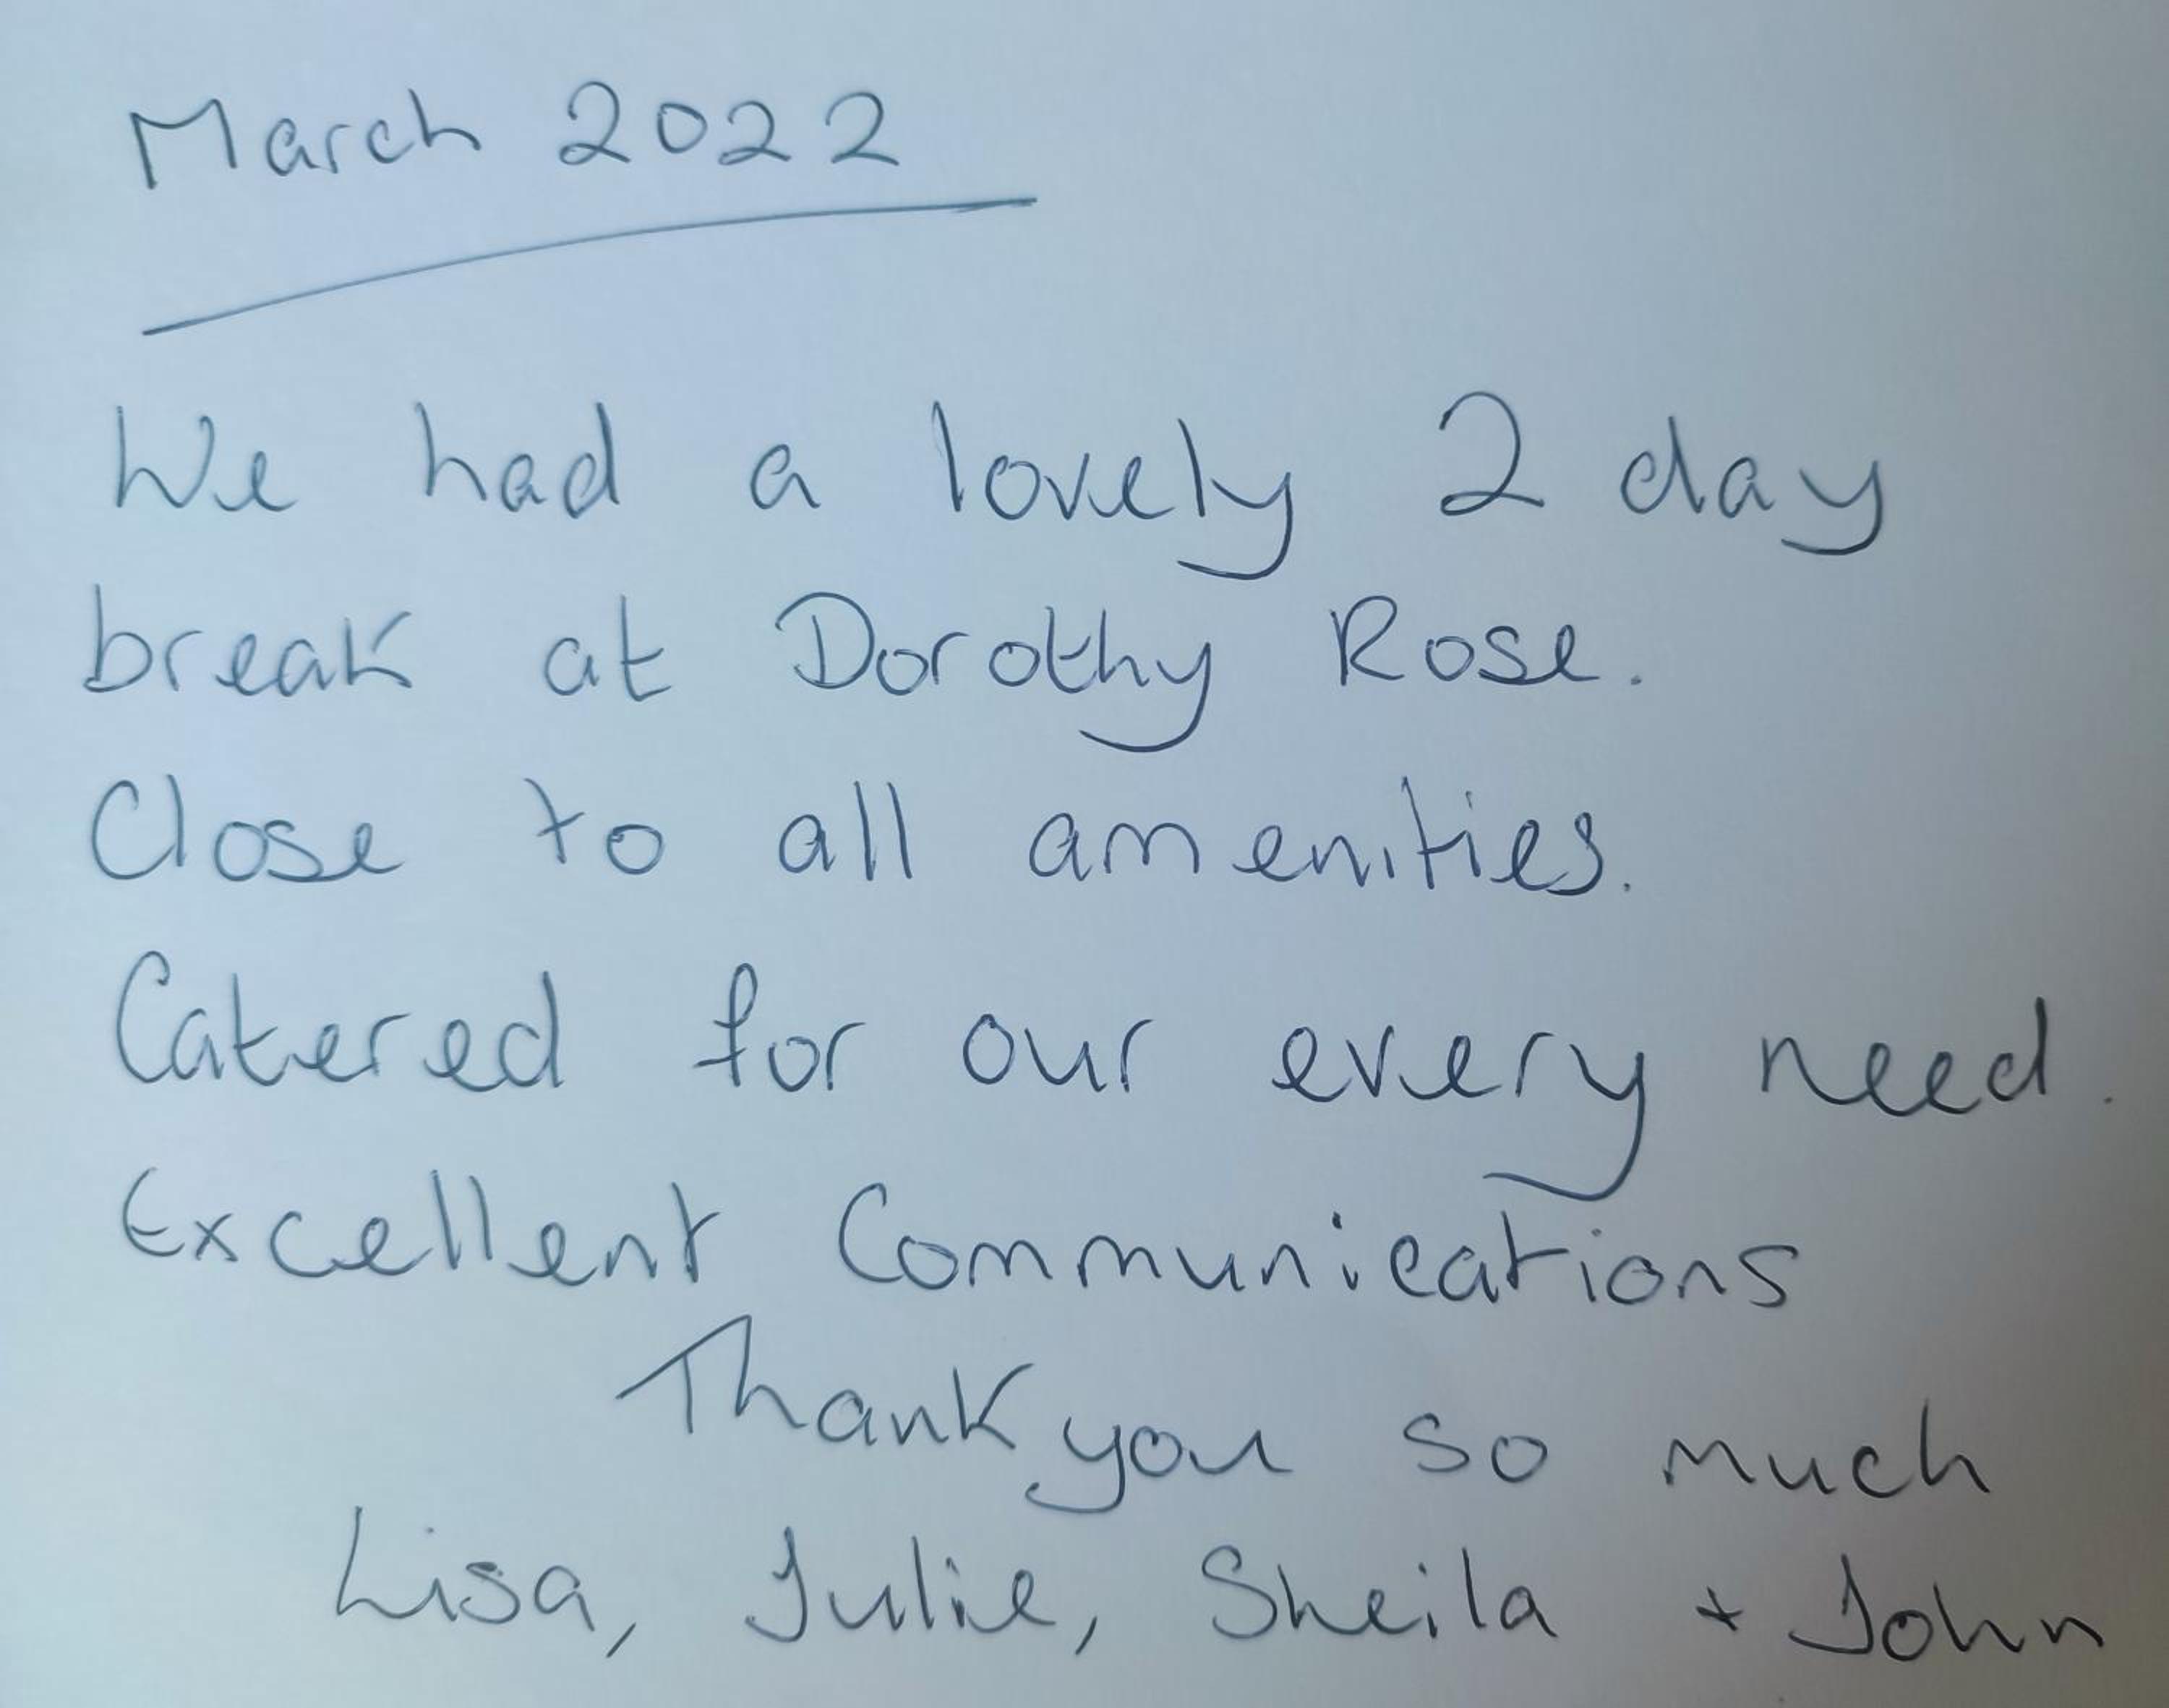 March 2022
We had a lovely 2 day
break at Dorothy Rose.
Close to all amenities.
Catered for our every need.
Excellent Communications
Thank you so much
Lisa, Julie, Sheila + John